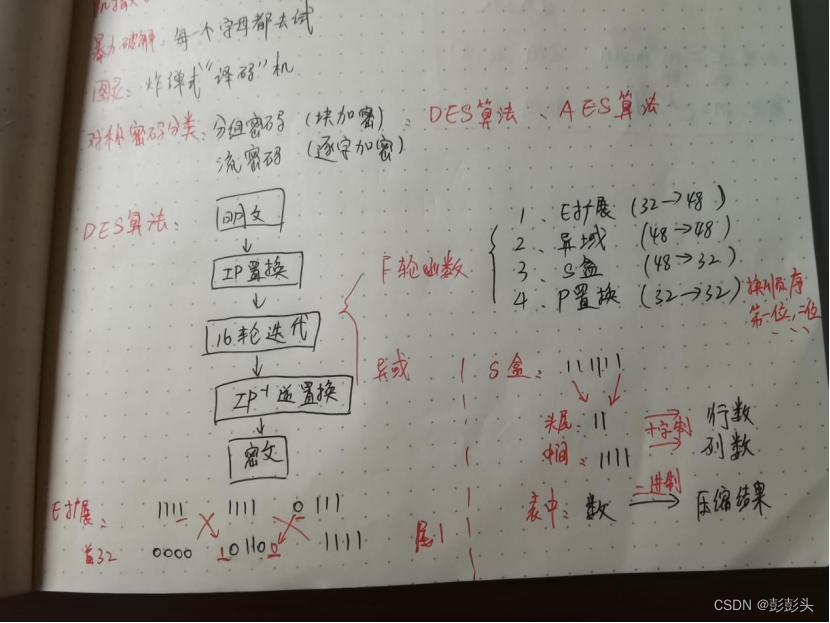 暴力破解:每一个字母都去试
图灵:炸弹式"译码"机
对称密码分类:分组密码(块加密):DES算法、AES算法
流密码(逐字加密)
DES算法:
明文
IP置换
16轮迭代
IP⁻¹逆置换
密文
F轮函数
1、E扩展(32→48)
2、异域(48→48)
3、S盒(48→32)
4、P置换(32→32)换顺序
第一位,二位
异或
S盒:111111
头尾:11 十字制 行数
中间:1111 列数
表中:数 二进制 压缩结果
E扩展:1111 1111 0111
首32 0000 101100 1111 尾1
CSDN @彭彭头